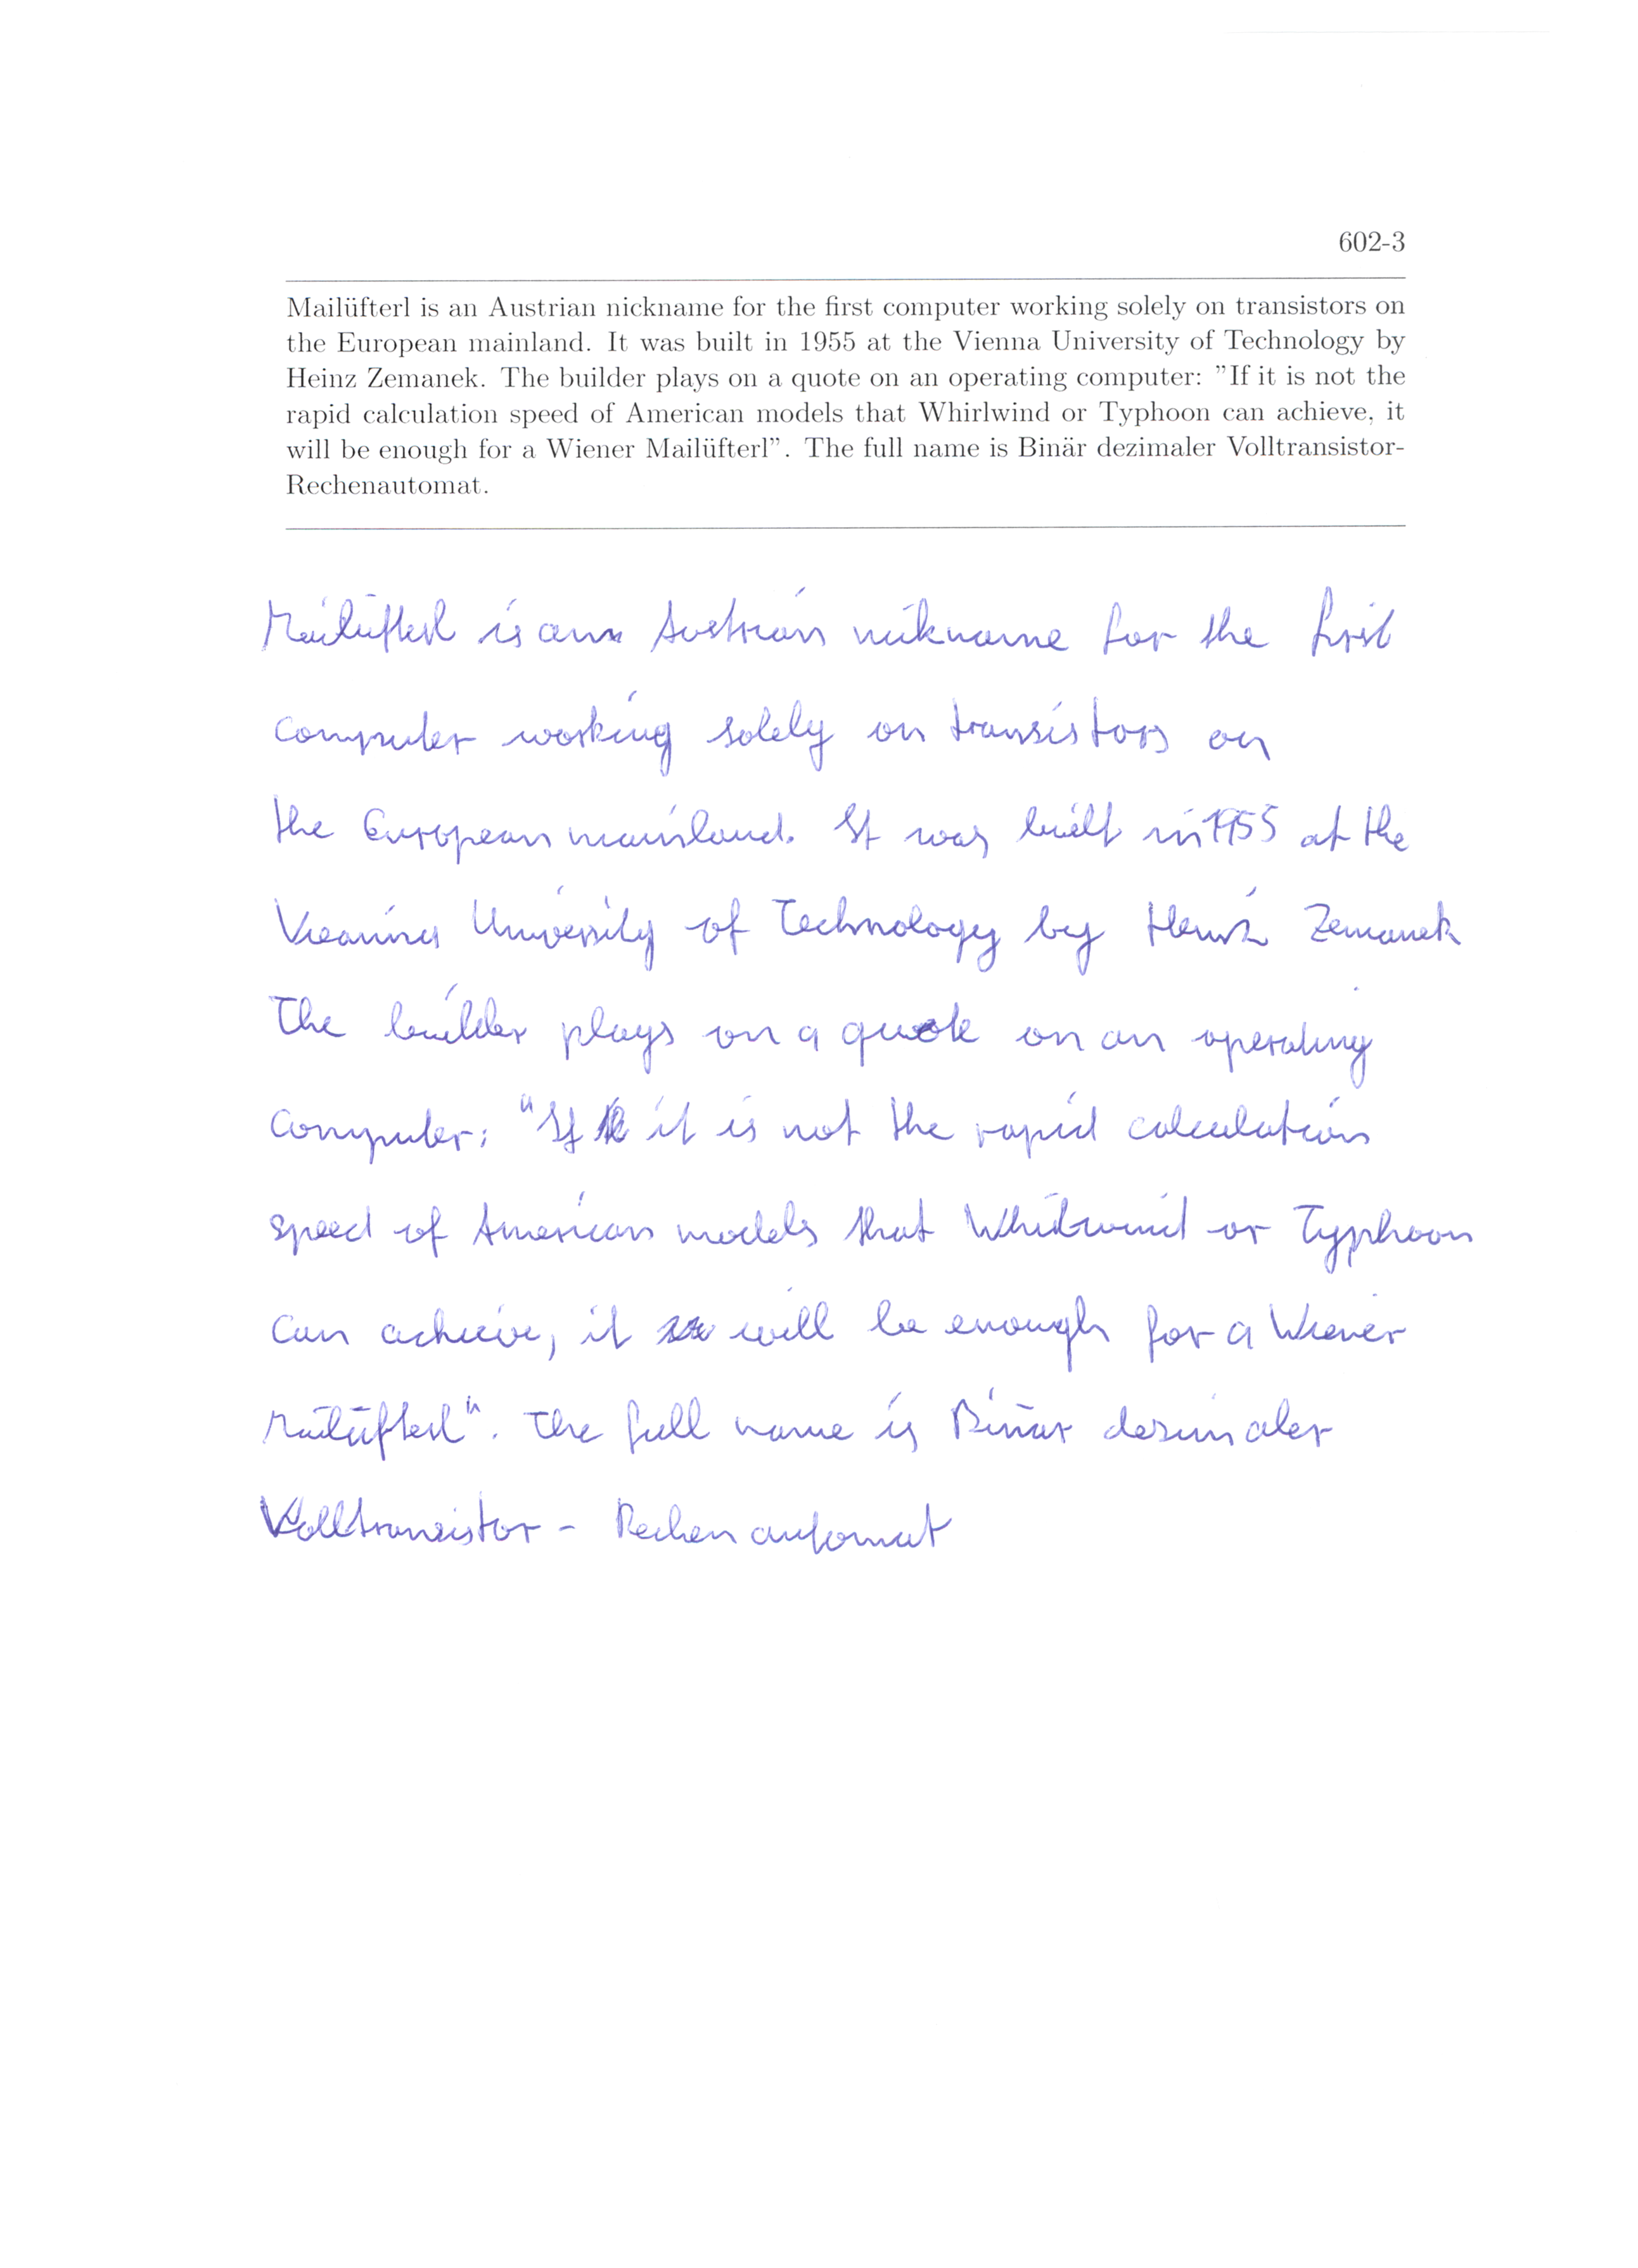 602-3
Mailüfterl is an Austrian nickname for the first computer working solely on transistors on
the European mainland. It was built in 1955 at the Vienna University of Technology by
Heinz Zemanek. The builder plays on a quote on an operating computer: "If it is not the
rapid calculation speed of American models that Whirlwind or Typhoon can achieve, it
will be enough for a Wiener Mailüfterl". The full name is Binär dezimaler Volltransistor-
Rechenautomat.
Mailüfterl is an Austrian nikname for the first
computer working solely on transistors on
the European mainland. It was built in 1955 at the
Vieanna University of Technology by Heinz Zemanek
The builder plays on a quote on an operating
computer: "If it is not the rapid calculation
speed of American models that Whirlwind or Typhoon
can achieve, it will be enough for a Wiener
Mailüfterl". The full name is Binär dezimaler
Volltransistor - Rechenautomat